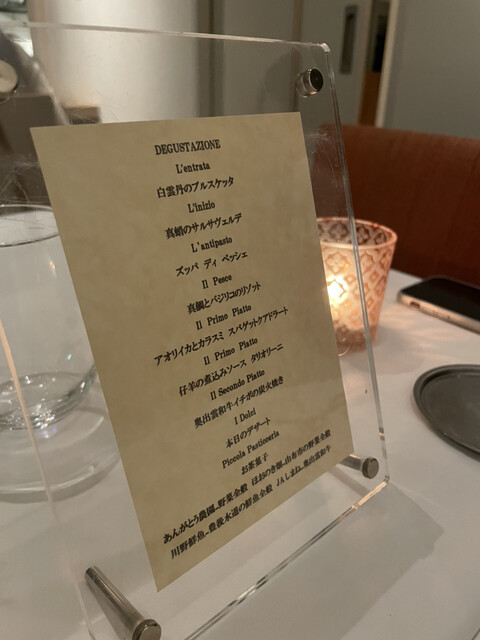 DEGUSTAZIONE
L'entrata
白雲丹のブルスケッタ
L'inizio
真蛸のサルサヴェルデ
L'antipasto
ズッパ ディ ペッシェ
Il Pesce
真鯛とバジリコのリゾット
Il Primo Piatto
アオリイカとカラスミ スパゲットクアドラート
Il Primo Piatto
仔羊の煮込みソース タリオリーニ
Il Secondo Piatto
奥出雲和牛イチボの炭火焼き
I Dolci
本日のデザート
Piccola Pasticceria
お茶菓子
あんがとう農園_野菜全般 ほおのき畑_由布市の野菜全般
川野鮮魚_豊後水道の鮮魚全般 JAしまね_奥出雲和牛